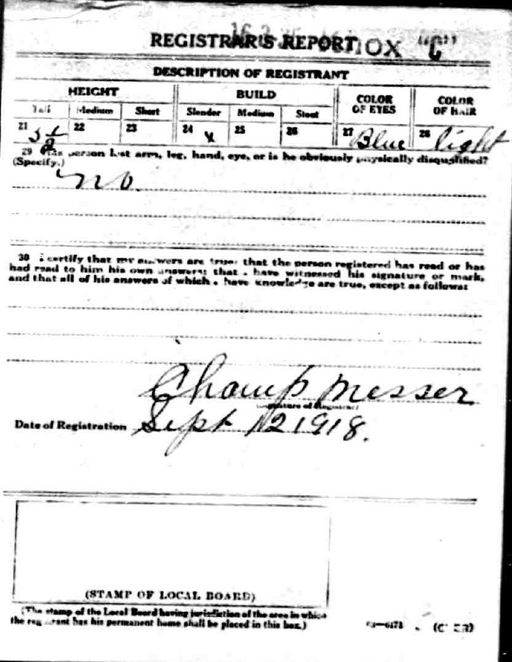 REGISTRAR'S REPORT
"C"
DESCRIPTION OF REGISTRANT
HEIGHT BUILD COLOR OF EYES COLOR OF HAIR
Tall Medium Short Slender Medium Stout
21 22 23 24 x 25 26 27 Blue 28 light
29 Has person lost arm, leg, hand, eye, or is he obviously physically disqualified?
(Specify.)
no
30 I certify that my answers are true; that the person registered has read or has
had read to him his own answers; that I have witnessed his signature or mark,
and that all of his answers of which I have knowledge are true, except as follows:
Champ Messer
(Signature of Registrar)
Date of Registration Sept 12 1918.
(STAMP OF LOCAL BOARD)
(The stamp of the Local Board having jurisdiction of the area in which
the registrant has his permanent home shall be placed in this box.)